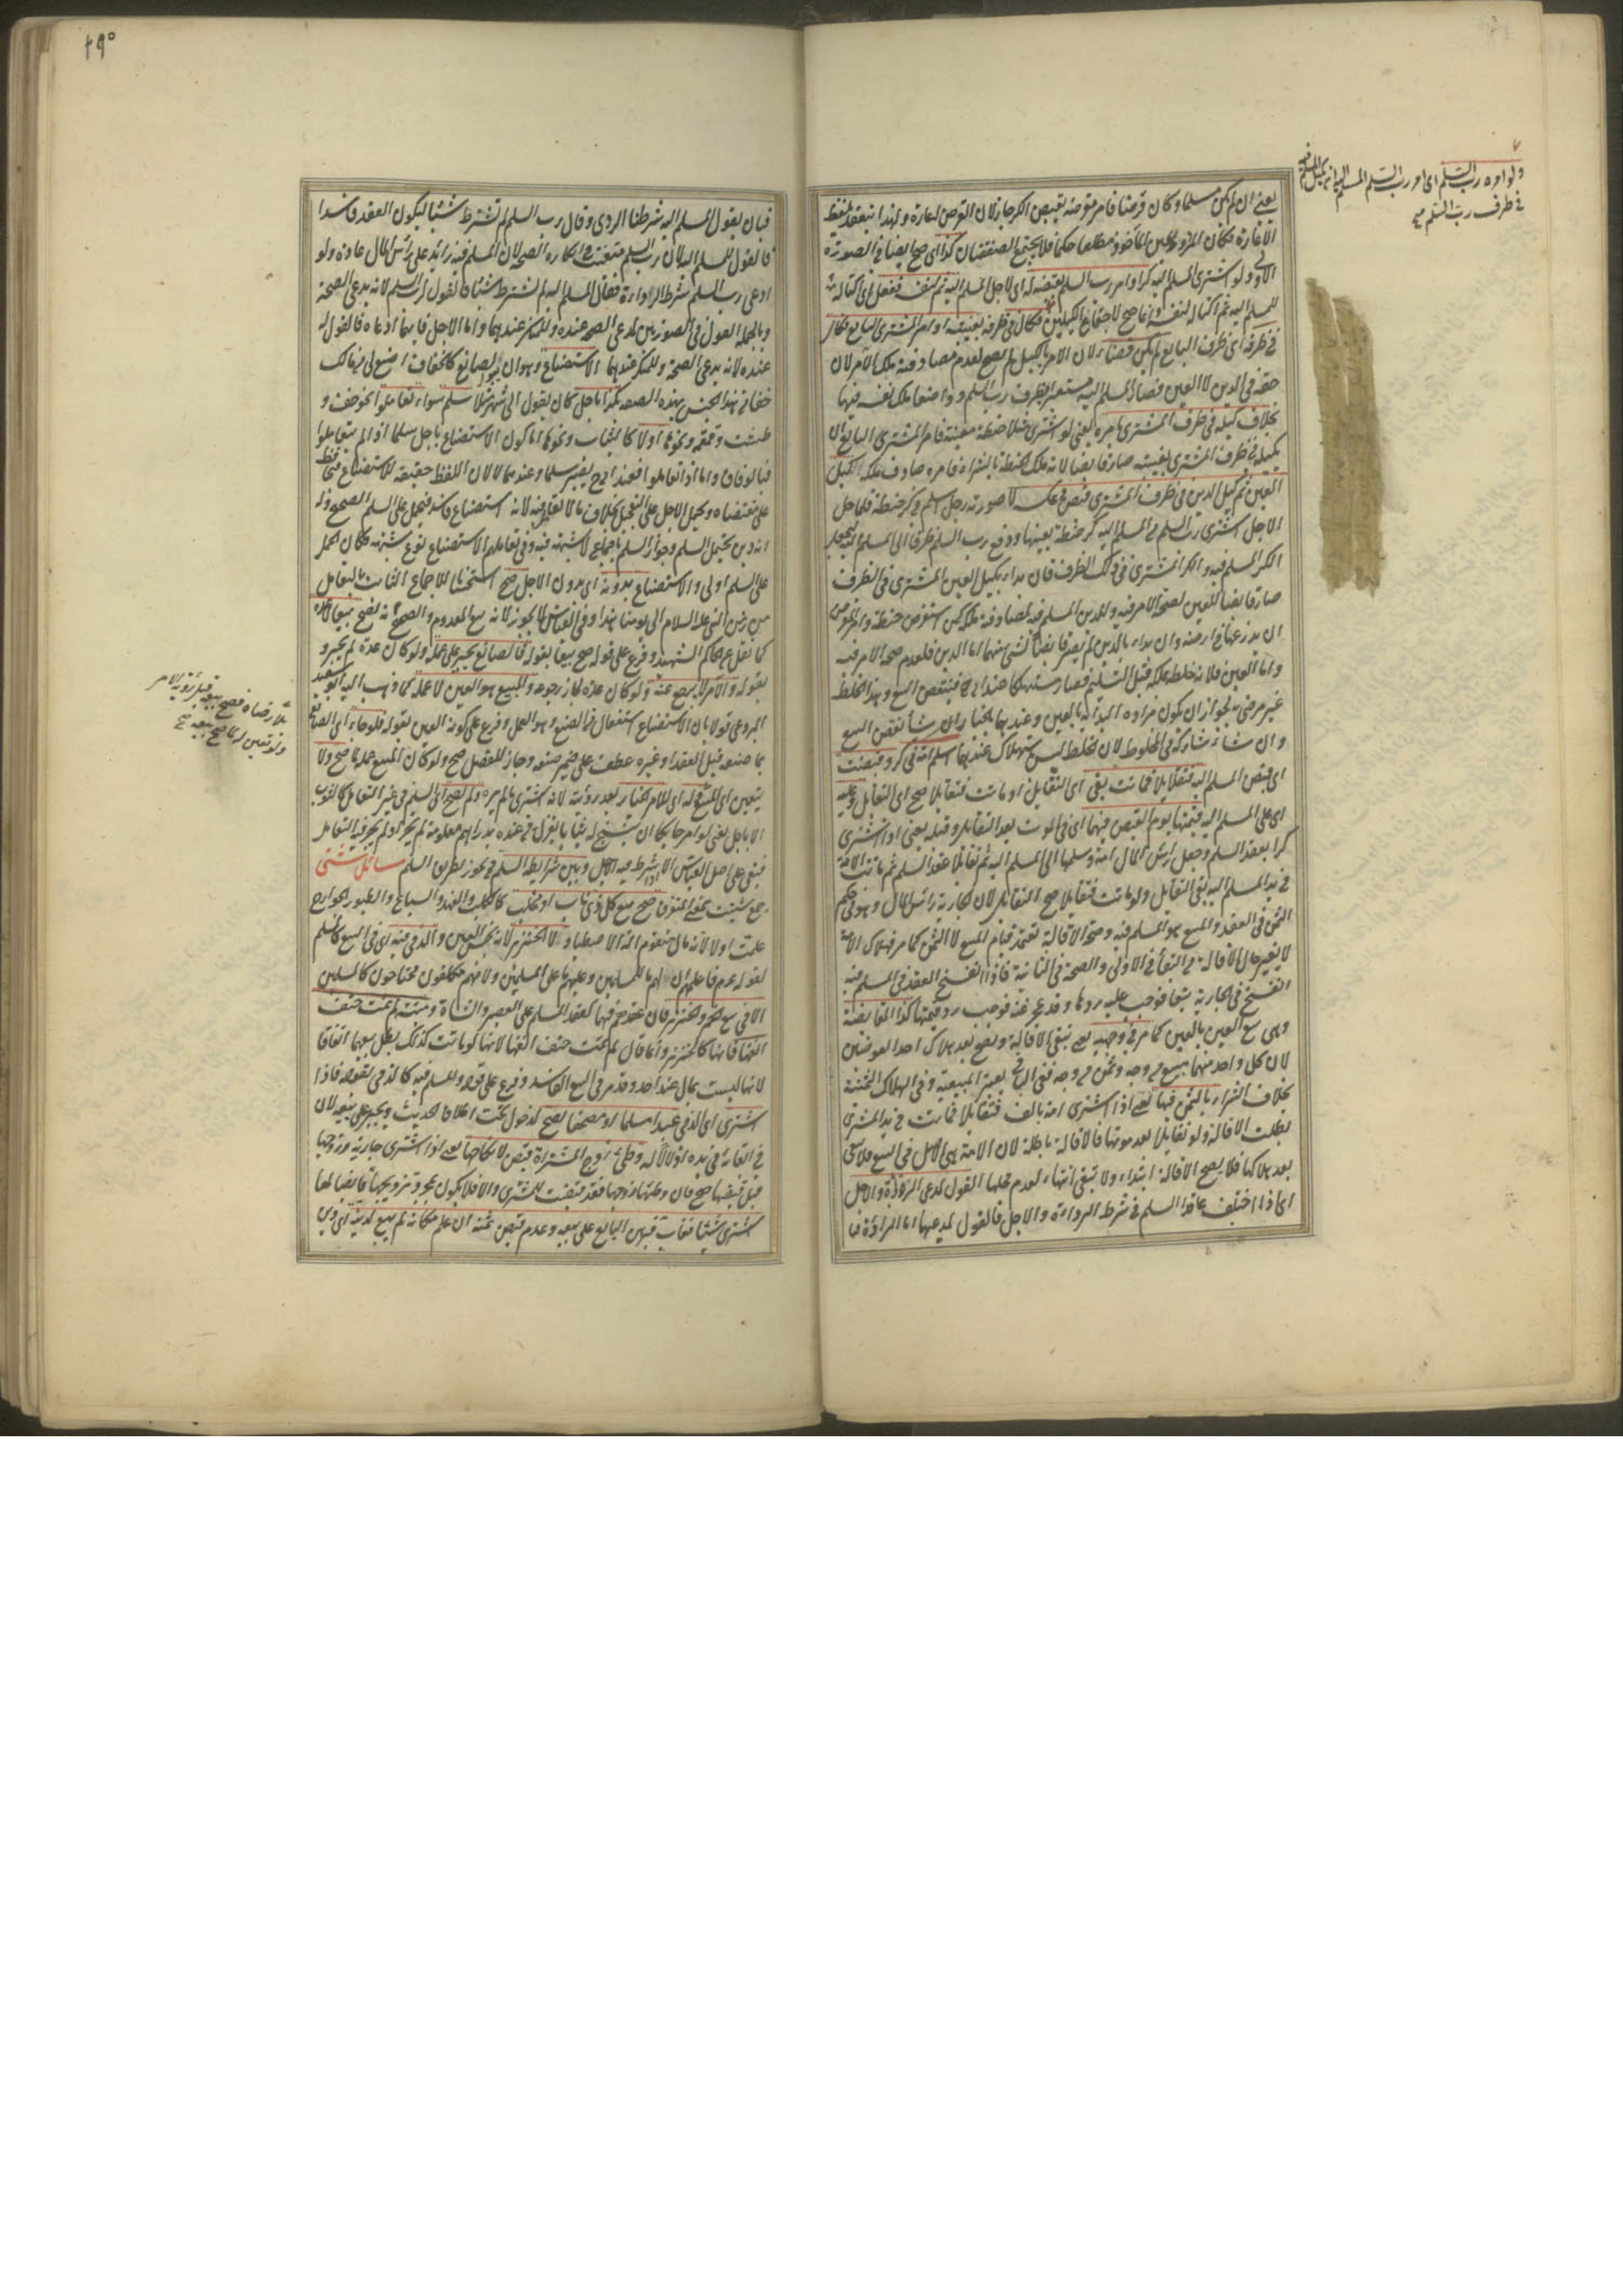 يعنى ان لم يكن سلما وكان قرضا فامر مقرضه بقبض الكر جاز لان القرض اعارة ولهذا ينعقد بلفظ
الاعارة فكان المردود عين المأخوذ مطلقا حكما فلا يجتمع الصفقتان كذا اى صح ايضا فى الصورة
الاولى ولو اشترى المسلم اليه كرا وامر رب السلم بقبضه له اى لاجل المسلم اليه ثم لنفسه ففعل اى اكتاله
للمسلم اليه ثم اكتاله لنفسه وانما صح لاجتماع الكيلين فكال فى ظرفه بغيبته او امر المشترى البايع فكال
فى ظرفه اى ظرف البايع لم يكن قبضا لان الامر بالكيل لم يصح لعدم مصادفته ملك الآمر لان
حقه فى الدين لا العين فصار المسلم اليه مستعيرا لظرف رب السلم وواضعا ملك نفسه فيها
بخلاف كيله فى ظرف المشترى بامره يعنى لو اشترى مثلا حنطة معينة فامر المشترى البايع ان
يكيله فى ظرف المشترى بغيبته صار قابضا لانه ملك الحنطة بالشراء فامره صادف ملكه اكيل
العين ثم كيل الدين فى ظرف المشترى قبض فى عكسه لا صورته رجل اسلم فى كر حنطة فلما حل
الاجل اشترى رب السلم من المسلم اليه كر حنطة بعينها ودفع رب السلم ظرفا الى المسلم اليه ليجعل
الكر المسلم فيه والكر المشترى فى ذلك الظرف فان بدأ بكيل العين المشترى فى الظرف
صار قابضا للعين لصحة الامر فيه وللدين المسلم فيه لمصادفته ملكه كمن استقرض حنطة وامر المقرض
ان يزرعها فى ارضه وان بدأ بالدين لم يصر قابضا لشئ منهما اما الدين فلعدم صحة الامر فيه
واما العين فلانه خلطه بملكه قبل التسليم فصار مستهلكا عند ابى ح فينتقض البيع وهذا الخلط
غير مرضى به لجواز ان يكون مراده البداية بالعين وعندهما بالخيار ان شاء نقض البيع
وان شاء شاركه فى المخلوط لان الخلط ليس باستهلاك عندهما اسلم امة فى كر وقبضت
اى قبض المسلم اليه فتقايلا فماتت بقى اى التقايل او ماتت فتقايلا صح اى التقايل وعليه
اى على المسلم اليه قيمتها يوم القبض فيهما اى فى الموت بعد التقايل وقبله يعنى اذا اشترى
كرا بعقد السلم وجعل رأس المال امة وسلمها الى المسلم اليه ثم تقايلا عقد السلم ثم ماتت الامة
فى يد المسلم اليه بقى التقايل ولو ماتت فتقايلا صح التقايل لان الجارية رأس المال وهو فى حكم
الثمن فى العقد والمبيع هو المسلم فيه وصحة الاقالة تعتمد قيام المبيع لا الثمن كما مر فهلاك الامة
لا يغير حال الاقالة من البقاء فى الاولى والصحة فى الثانية فاذا انفسخ العقد فى المسلم فيه
انفسخ فى الجارية تبعا فوجب عليه ردها وقد عجز عنه فوجب رد قيمتها كذا المقايضة
وهى بيع العين بالعين كما مر فى وجهيه يعنى تبقى الاقالة وتصح بعد هلاك احد العوضين
لان كل واحد منهما مبيع من وجه وثمن من وجه ففى الباقى يعتبر المبيعية وفى الهلاك الثمنية
بخلاف الشراء بالثمن فيهما يعنى اذا اشترى امة بالف فتقايلا فماتت فى يد المشترى
بطلت الاقالة ولو تقايلا بعد موتها فالاقالة باطلة لان الامة هى الاصل فى البيع فلا تبقى
بعد هلاكها فلا يصح الاقالة ابتداء ولا تبقى انتهاء لعدم محلها القول لمدعى الرداءة والاجل
اى اذا اختلف عاقدا السلم فى شرط الرداءة والاجل فالقول لمدعيهما اما الرداءة فبا
ولو امره رب السلم اى امر رب السلم المسلم اليه ان يكيل المسلم فيه
فى ظرف رب السلم صح
٢٩٥
فبان يقول المسلم اليه شرطنا الردى وقال رب السلم لم تشترط شيئا ليكون العقد فاسدا
فالقول للمسلم اليه لان رب السلم متعنت فى انكاره الصحة لان المسلم فيه زائد على رأس المال عادة ولو
ادعى رب السلم شرط الرداءة فقال المسلم اليه لم تشترط شيئا فالقول لرب السلم لانه يدعى الصحة
وبالجملة القول فى الصورتين لمدعى الصحة عنده وللمنكر عندهما واما الاجل فايهما ادعاه فالقول له
عنده لانه يدعى الصحة وللمنكر عندهما الاستصناع وهو ان يقول لصانع كالخفاف اصنع لى من مالك
خفا من هذا الجنس بهذه الصفة بكذا باجل كان يقول الى شهر مثلا سلم سواء تعاملوا كخف و
طشت وقمقمة ونحوها اولا كالثياب ونحوها اما كون الاستصناع باجل سلما اذا لم يتعاملوا
فبالوفاق واما اذا تعاملوا فعند ابى ح يصير سلما وعندهما لا لان اللفظ حقيقة للاستصناع فيحافظ
على مقتضاه ويحمل الاجل على التعجيل بخلاف ما لا تعامل فيه لانه استصناع فاسد فيحمل على السلم الصحيح وله
انه دين يحتمل السلم وجواز السلم باجماع لا شبهة فيه وفى تعاملهم الاستصناع نوع شبهة فكان الحمل
على السلم اولى والاستصناع بدونه اى بدون الاجل صح استحسانا للاجماع الثابت بالتعامل
من زمن النبى عليه السلام الى يومنا هذا وفى القياس لا يجوز لانه بيع المعدوم والصحيح انه يصح بيعا لا عدة
كما نقل عن الحاكم الشهيد وفرع على قوله صح بيعا بقوله فالصانع يجبر على عمله ولو كان عدة لم يجبر و
بقوله والآمر لا يرجع عنه ولو كان عدة لجاز رجوعه والمبيع هو العين لا عمله كما ذهب اليه ابو سعيد
البردعى قولا بان الاستصناع استفعال من الصنع وهو العمل وفرع على كونه العين بقوله فلو جاء اى الصانع
بما صنعه قبل العقد او غيره عطف على ضمير صنعه وجاز للفصل صح ولو كان المبيع عمله لما صح ولا
يتعين اى المبيع له اى للآمر الخيار بعد رؤيته لانه اشترى ما لم يره ولم يصح اى السلم فى غير التعامل كالثوب
الا باجل يعنى لو امر حايكا ان ينسج له ثيابا بغزل من عنده بدراهم معلومة لم يجز اذ لم يجز فيه التعامل
فبقى على اصل القياس الا اذا شرط فيه الاجل وبين شرايط السلم فيجوز بطريق السلم مسائل شتى
جمع شتيت بمعنى المتفرق صح بيع كل ذى ناب او مخلب كالكلب والفهد والسباع والطيور الجوارح
علمت اولا لانه مال متقوم آلة الاصطياد الا الخنزير لانه نجس العين والذمى فيه اى فى البيع كالمسلم
لقوله عم فاعلمهم ان لهم ما للمسلمين وعليهم ما على المسلمين ولانهم مكلفون محتاجون كالمسلمين
الا فى بيع الخمر والخنزير فان عقدهم فيهما كعقد المسلم على العصير والشاة وميتة لم تمت حتف
انفها فانها كالخنزير وانما قال لم تمت حتف انفها لانها لو ماتت كذلك بطل بيعها اتفاقا
لانها ليست بمال عند احد وقد مر فى البيع الفاسد وفرع على قوله والمسلم فيه كالذمى بقوله فاذا
اشترى اى الذمى عبدا مسلما او مصحفا يصح لدخول تحت اطلاق الحديث ويجبر على بيعه لان
فى ابقائه فى يده اذلالا له وطئ زوج المشتراة قبض لا نكاحها يعنى اذا اشترى جارية وزوجها
قبل قبضها صح فان وطئها زوجها فقد قبضت المشترى والا فلا يكون بمجرد تزويجها قابضا لها
اشترى شيئا فغاب فبرهن البايع على بيعه وعدم قبض ثمنه ان علم مكانه لم يبع لدينه اى دين